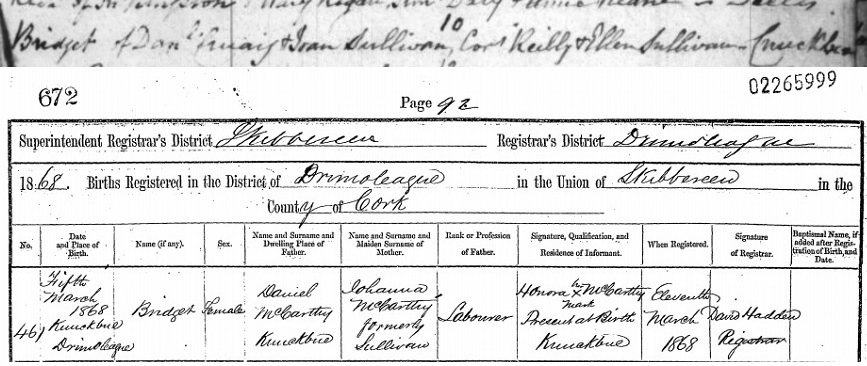 Bridget of Danl Cruaig & Joan Sullivan, Cors Reilly & Ellen Sullivan
10
02265999
672
Page 92
Superintendent Registrar's District Skibbereen Registrar's District Drimoleague
1868. Births Registered in the District of Drimoleague in the Union of Skibbereen in the
County of Cork
No. Date and Place of Birth. Name (if any). Sex. Name and Surname and Dwelling Place of Father. Name and Surname and Maiden Surname of Mother. Rank or Profession of Father. Signature, Qualification, and Residence of Informant. When Registered. Signature of Registrar. Baptismal Name, if added after Registration of Birth, and Date.
461
Fifth
March
1868
Knuckbue
Drimoleague
Bridget
Female
Daniel
McCarthy
Knuckbue
Johanna
McCarthy
formerly
Sullivan
Labourer
Honora X McCarthy
her
mark
Present at Birth
Knuckbue
Eleventh
March
1868
David Hadden
Registrar